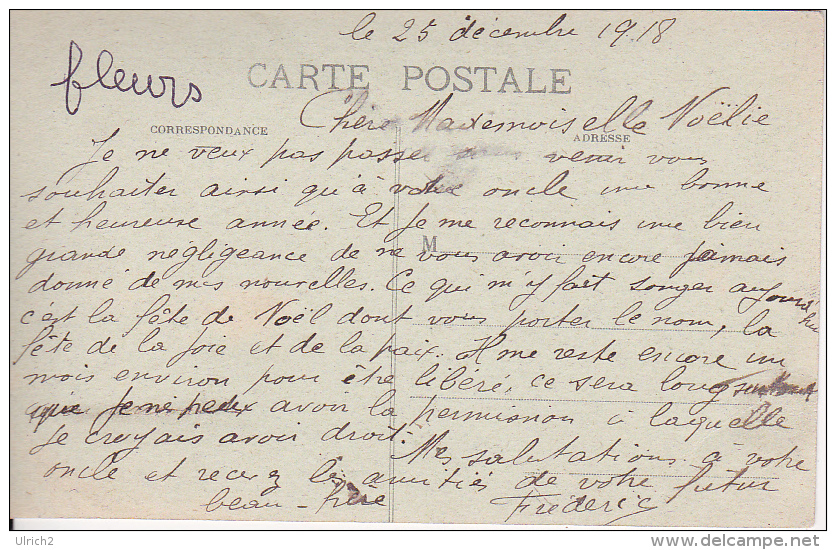 le 25 décembre 1918
fleurs
CARTE POSTALE
Chère Mademoiselle Noëlie
CORRESPONDANCE
ADRESSE
Je ne veux pas passer sans venir vous
souhaiter ainsi qu'à votre oncle une bonne
et heureuse année. Et je me reconnais une bien
grande négligeance de ne vous avoir encore jamais
M
donné de mes nouvelles. Ce qui m'y fait songer aujourd'hui
c'est la fête de Noël dont vous porter le nom, la
fête de la joie et de la paix. Il me reste encore un
mois environ pour être libéré, ce sera long surtout
que je ne peux avoir la permission à laquelle
je croyais avoir droit.
Mes salutations à votre
oncle et recevez les amitiés de votre futur
beau-frère
Fréderic
Ulrich2
www.delcampe.net